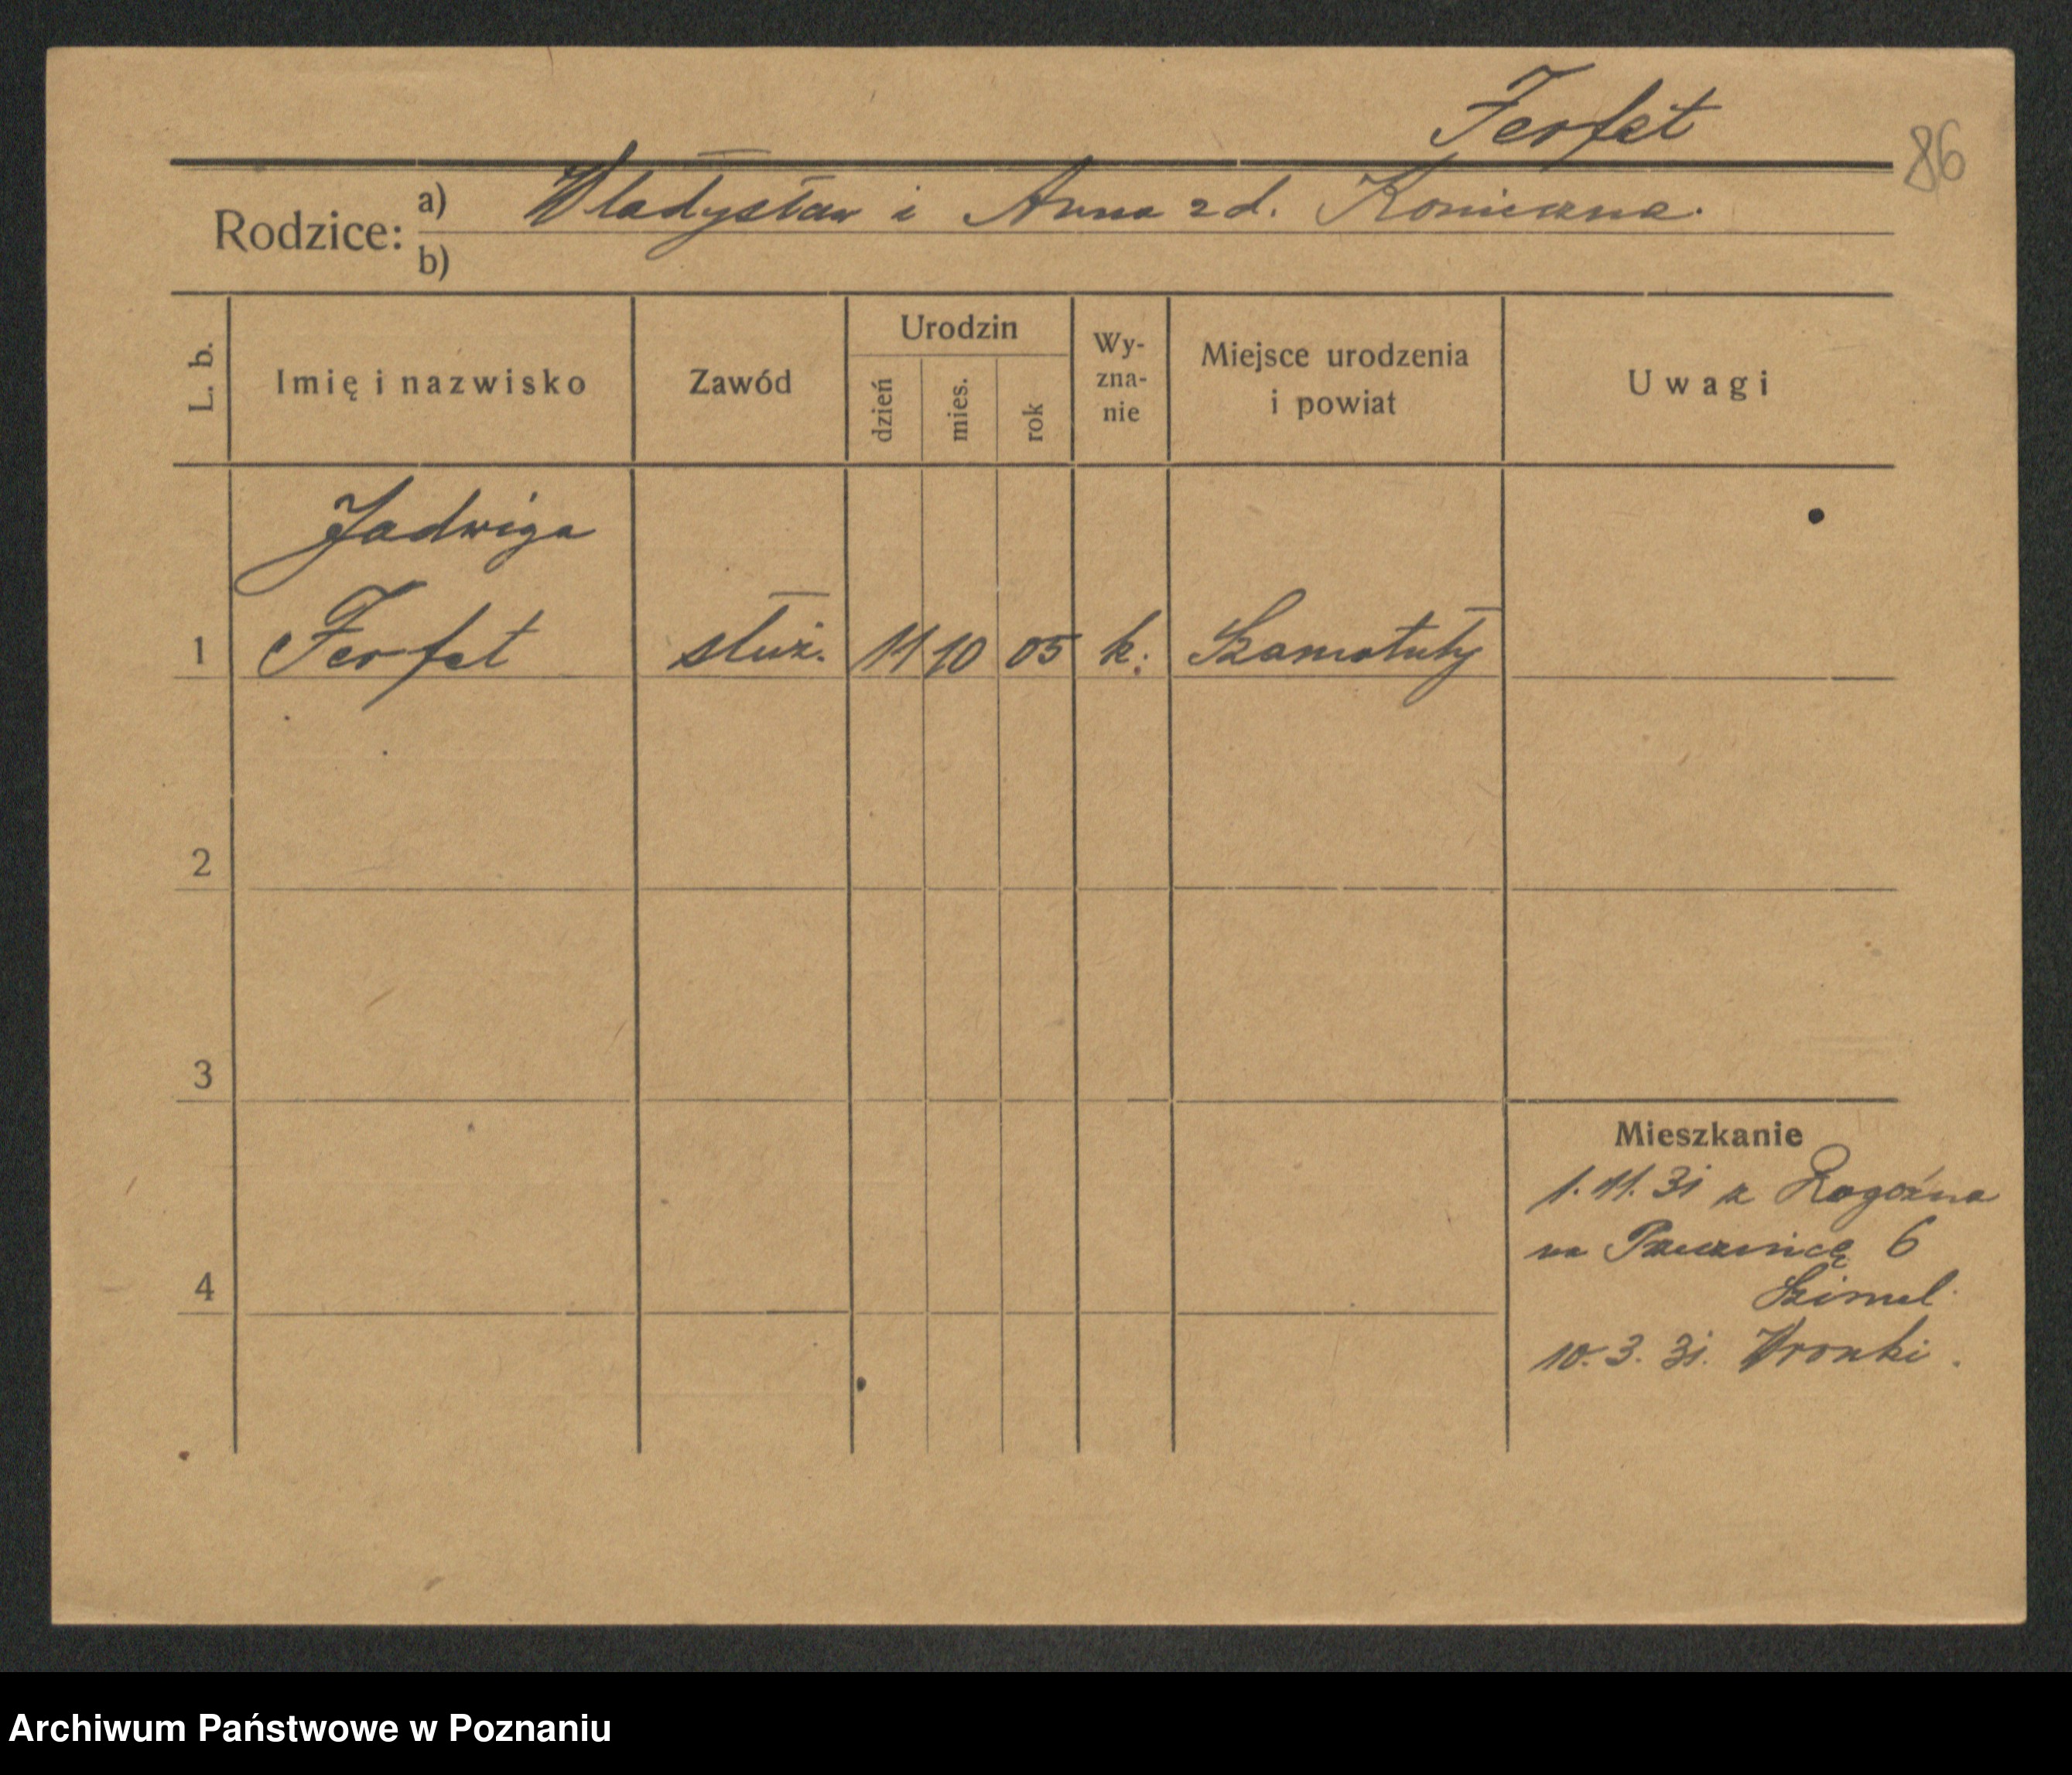 Ferfet
86
Rodzice: a) Władysław i Anna zd. Konieczna.
b)
L. b. Imię i nazwisko Zawód Urodzin dzień mies. rok Wy-zna-nie Miejsce urodzenia i powiat Uwagi
Jadwiga
1 Ferfet służ. 11 10 05 k. Szamotuły
2
3
Mieszkanie
1.11.31 z Rogoźna
na 6
4
Szimel
10.3.31. Wronki.
Archiwum Państwowe w Poznaniu